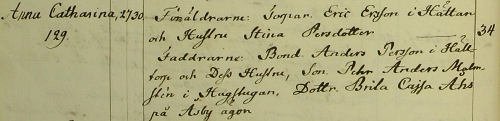 Anna Catharina, 27 30. Föräldrarne: Torpar. Eric Ersson i Hättan
129. och Hustru Stina Persdotter 34
Faddrarne: Bond Anders Persson i Häll-
torp och Dess Hustru, Son Pehr Anders Malm-
stén i Hagstugan, Dottr. Brita Cajsa Åhs
på Åsby ägor